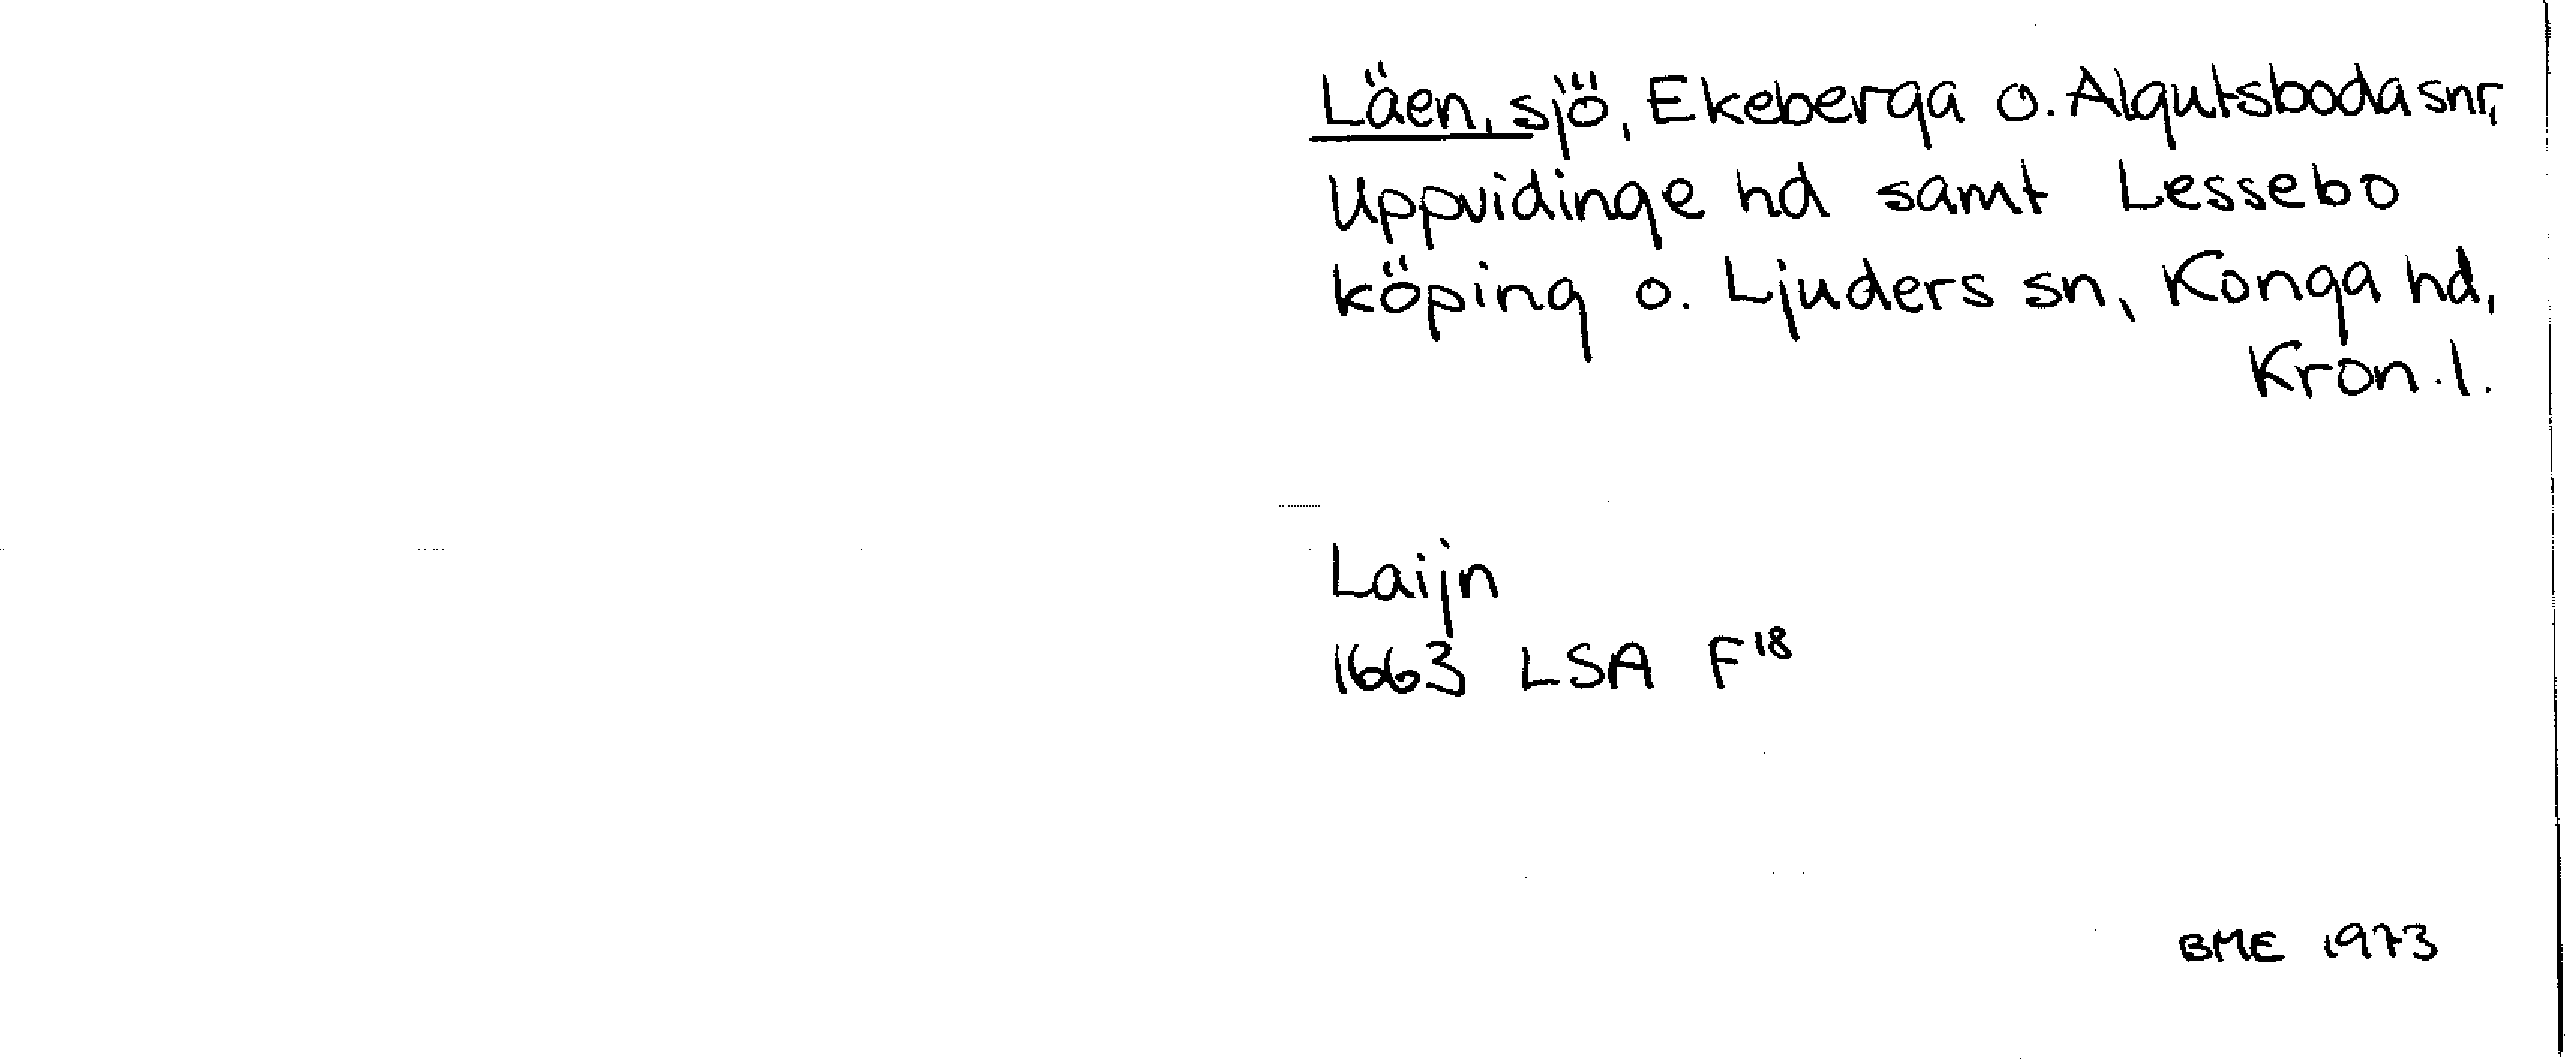 Läen, sjö, Ekeberga o. Algutsboda snr,
Uppvidinge hd samt Lessebo
köping o. Ljuders sn, Konga hd,
Kron. l.
Laijn
1663 LSA F¹⁸
BME 1973